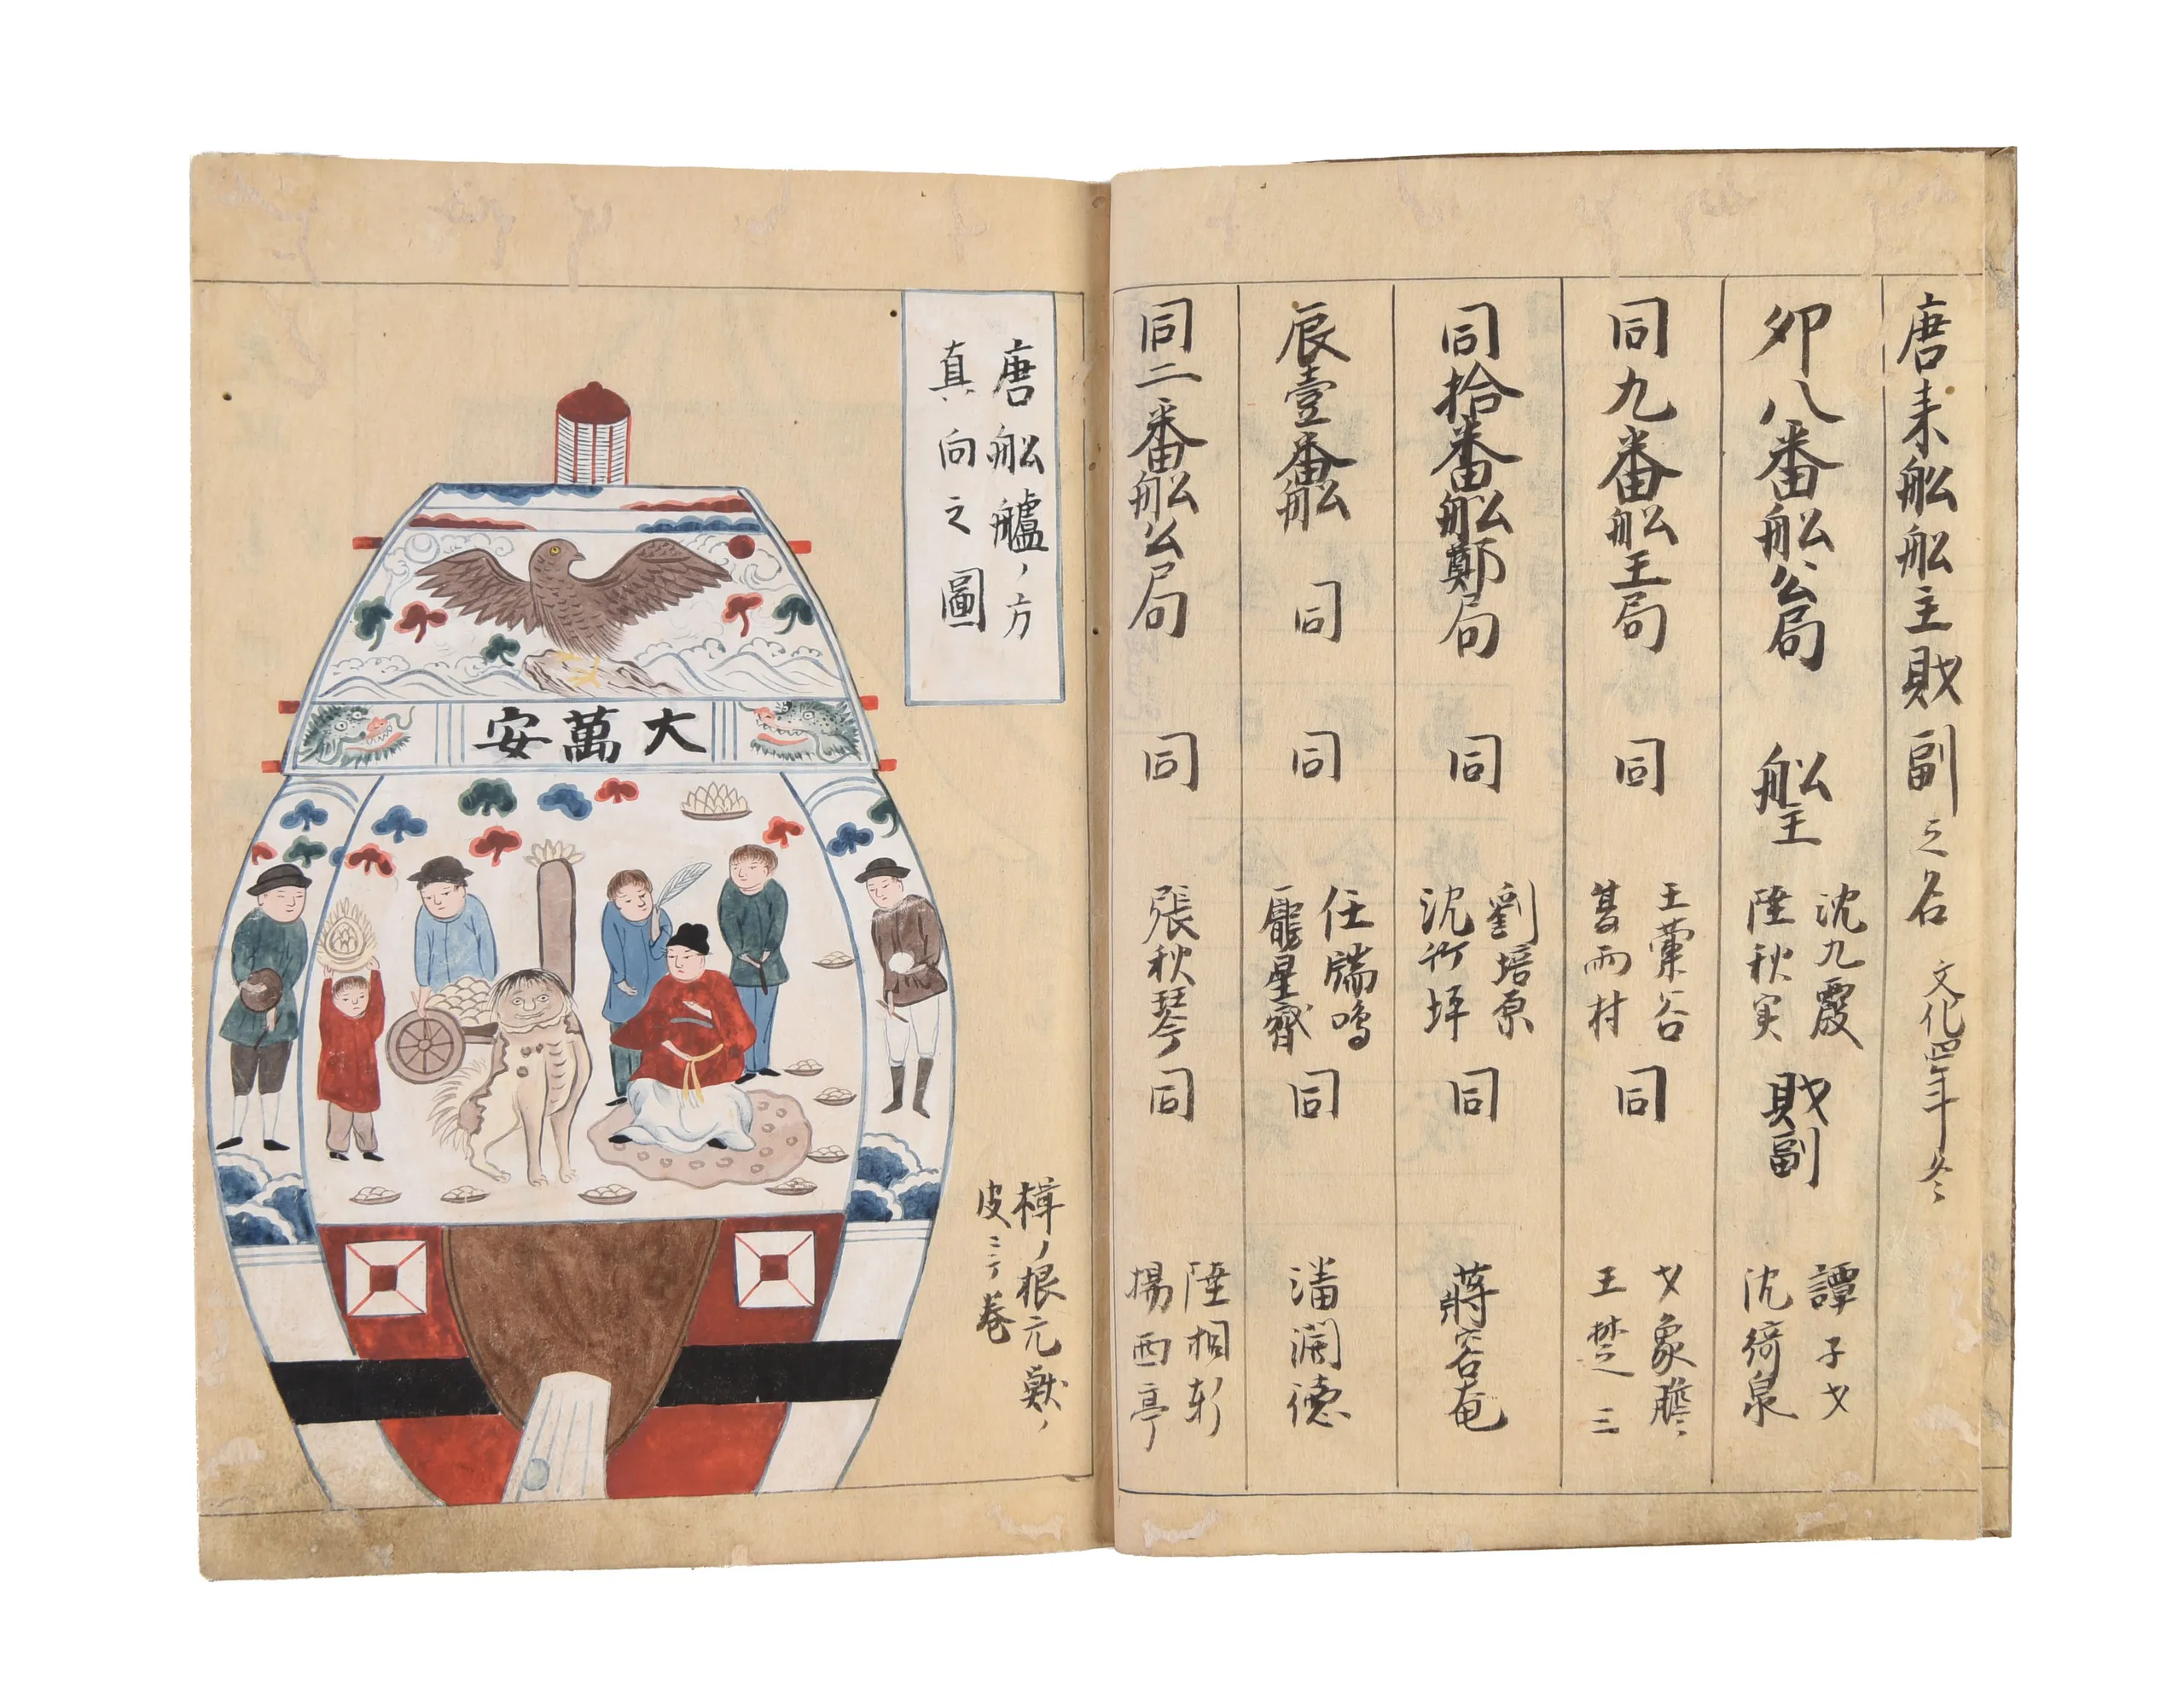 唐来舩舩主財副之名 文化四年冬
卯八番舩公局 舩主 沈九霞 陸秋実 財副 譚子才 沈綺泉
同九番舩王局 同 王蘭谷 雨村 同 才象 王楚三
同拾番舩鄭局 同 劉培原 沈竹坪 同 蒋容菴
辰壹番舩 同 同 任瑞鳴 龐星齋 同 潘潤徳
同二番舩公局 同 張秋琴 同 陸桐軒 楊西亭
唐舩艫ノ方
真向之圖
大萬安
楫ノ根元獣ノ
皮ニテ巻